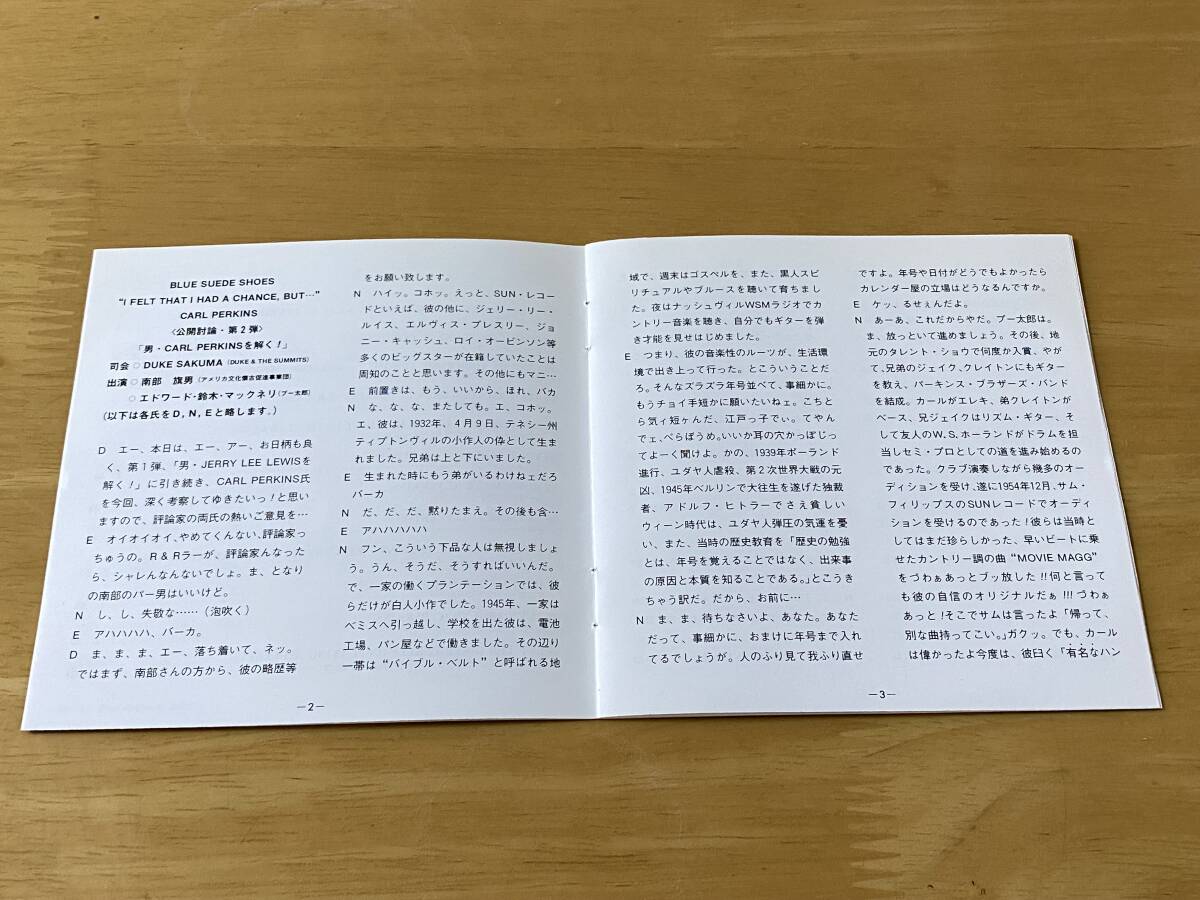 BLUE SUEDE SHOES
“I FELT THAT I HAD A CHANCE, BUT…”
CARL PERKINS
〈公開討論・第2弾〉
「男・CARL PERKINSを解く!」
司会○DUKE SAKUMA (DUKE & THE SUMMITS)
出演○南部 旗男 (アメリカ文化懐古促進事業団)
○エドワード・鈴木・マックネリ (プー太郎)
(以下は各氏をD, N, Eと略します。)
D エー、本日は、エー、アー、お日柄も良
く、第1弾、「男・JERRY LEE LEWISを
解く!」に引き続き、CARL PERKINS氏
を今回、深く考察してゆきたいっ!と思い
ますので、評論家の両氏の熱いご意見を…
E オイオイオイ、やめてくんない、評論家っ
ちゅうの。R&Rラーが、評論家んなった
ら、シャレんなんないでしょ。ま、となり
の南部のバー男はいいけど。
N し、し、失敬な……(泡吹く)
E アハハハハ、バーカ。
D ま、ま、ま、エー、落ち着いて、ネッ。
ではまず、南部さんの方から、彼の略歴等
をお願い致します。
N ハイッ。コホッ。えっと、SUN・レコー
ドといえば、彼の他に、ジェリー・リー・
ルイス、エルヴィス・プレスリー、ジョ
ニー・キャッシュ、ロイ・オービンソン等
多くのビッグスターが在籍していたことは
周知のことと思います。その他にもマニ…
E 前置きは、もう、いいから、ほれ、バカ
N な、な、な、またしても。エ、コホッ。
エ、彼は、1932年、4月9日、テネシー州
ティプトンヴィルの小作人の倅として生ま
れました。兄弟は上と下にいました。
E 生まれた時にもう弟がいるわけねェだろ
バーカ
N だ、だ、だ、黙りたまえ。その後も含…
E アハハハハハ
N フン、こういう下品な人は無視しましょ
う。うん、そうだ、そうすればいいんだ。
で、一家の働くプランテーションでは、彼
らだけが白人小作でした。1945年、一家は
ベミスへ引っ越し、学校を出た彼は、電池
工場、パン屋などで働きました。その辺り
一帯は“バイブル・ベルト”と呼ばれる地
—2—
域で、週末はゴスペルを、また、黒人スピ
リチュアルやブルースを聴いて育ちまし
た。夜はナッシュヴィルWSMラジオでカ
ントリー音楽を聴き、自分でもギターを弾
き才能を見せはじめました。
E つまり、彼の音楽性のルーツが、生活環
境で出き上って行った。とこういうことだ
ろ。そんなズラズラ年号並べて、事細かに。
もうチョイ手短かに願いたいねェ。こちと
ら気ィ短ヶんだ、江戸っ子でぃ。てやん
でェ、べらぼうめ。いいか耳の穴かっぽじっ
てよーく聞けよ。かの、1939年ポーランド
進行、ユダヤ人虐殺、第2次世界大戦の元
凶、1945年ベルリンで大往生を遂げた独裁
者、アドルフ・ヒトラーでさえ貧しい
ウィーン時代は、ユダヤ人弾圧の気運を憂
い、また、当時の歴史教育を「歴史の勉強
とは、年号を覚えることではなく、出来事
の原因と本質を知ることである。」とこうき
ちゃう訳だ。だから、お前に…
N ま、ま、待ちなさいよ、あなた。あなた
だって、事細かに、おまけに年号まで入れ
てるでしょうが。人のふり見て我ふり直せ
ですよ。年号や日付がどうでもよかったら
カレンダー屋の立場はどうなるんですか。
E ケッ、るせぇんだよ。
N あーあ、これだからやだ。プー太郎は。
ま、放っといて進めましょう。その後、地
元のタレント・ショウで何度か入賞、やが
て、兄弟のジェイク、クレイトンにもギター
を教え、パーキンス・ブラザーズ・バンド
を結成。カールがエレキ、弟クレイトンが
ベース、兄ジェイクはリズム・ギター、そ
して友人のW.S.ホーランドがドラムを担
当しセミ・プロとしての道を進み始めるの
であった。クラブ演奏しながら幾多のオー
ディションを受け、遂に1954年12月、サム・
フィリップスのSUNレコードでオーディ
ションを受けるのであった!彼らは当時と
してはまだ珍らしかった、早いビートに乗
せたカントリー調の曲“MOVIE MAGG”
をづわぁあっとブッ放した!!何と言って
も彼の自信のオリジナルだぁ!!!づわぁ
あっと!そこでサムは言ったよ「帰って、
別な曲持ってこい。」ガクッ。でも、カール
は偉かったよ今度は、彼曰く「有名なハン
—3—